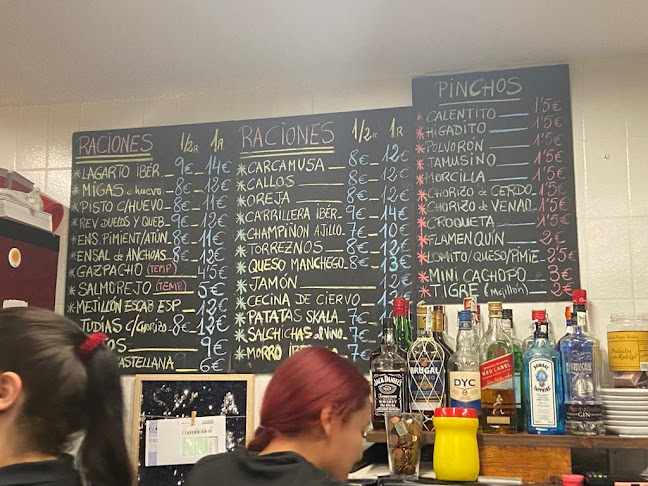 RACIONES 1/2R 1R
LAGARTO IBÉR. 9€ 14€
MIGAS c/huevo 8€ 12€
PISTO C/HUEVO 8€ 11€
REVUELOS Y QUEB. 9€ 12€
ENS. PIMIENT/ATÚN 8€ 11€
ENSAL de ANCHOAS 8€ 12€
GAZPACHO (TEMP) 4'5€
SALMOREJO (TEMP) 5€
MEJILLÓN ESCAB ESP 12€
JUDÍAS C/CHORIZO 8€ 13€
9€
CASTELLANA 6€
RACIONES 1/2R 1R
CARCAMUSA 8€ 12€
CALLOS 8€ 12€
OREJA 8€ 12€
CARRILLERA IBÉR. 9€ 14€
CHAMPIÑON AJILLO 7€ 10€
TORREZNOS 8€ 12€
QUESO MANCHEGO 8€ 13€
JAMÓN
CECINA DE CIERVO
PATATAS SKALA
SALCHICHAS al VINO 7€
MORRO 7€
PINCHOS
CALENTITO 1'5€
HIGADITO 1'5€
POLVORÓN 1'5€
JAMUSINO 1'5€
MORCILLA 1'5€
CHORIZO de CERDO 1'5€
CHORIZO de VENAO 1'5€
CROQUETA 1'5€
FLAMENQUÍN 2€
LOMITO/QUESO/PIMIE 2'5€
MINI CACHOPO 3€
TIGRE (Mejillón) 2€
JACK DANIEL'S
BRUGAL
DYC
8
RED LABEL
BOMBAY SAPPHIRE
GIN